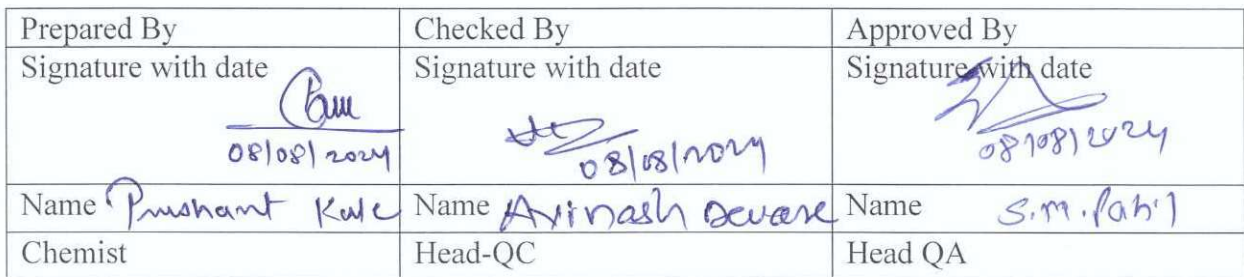 Prepared By Checked By Approved By
Signature with date Signature with date Signature with date
08/08/2024 08/08/2024 08/08/2024
Name Prashant Kale Name Avinash Devare Name S.M. Patil
Chemist Head-QC Head QA